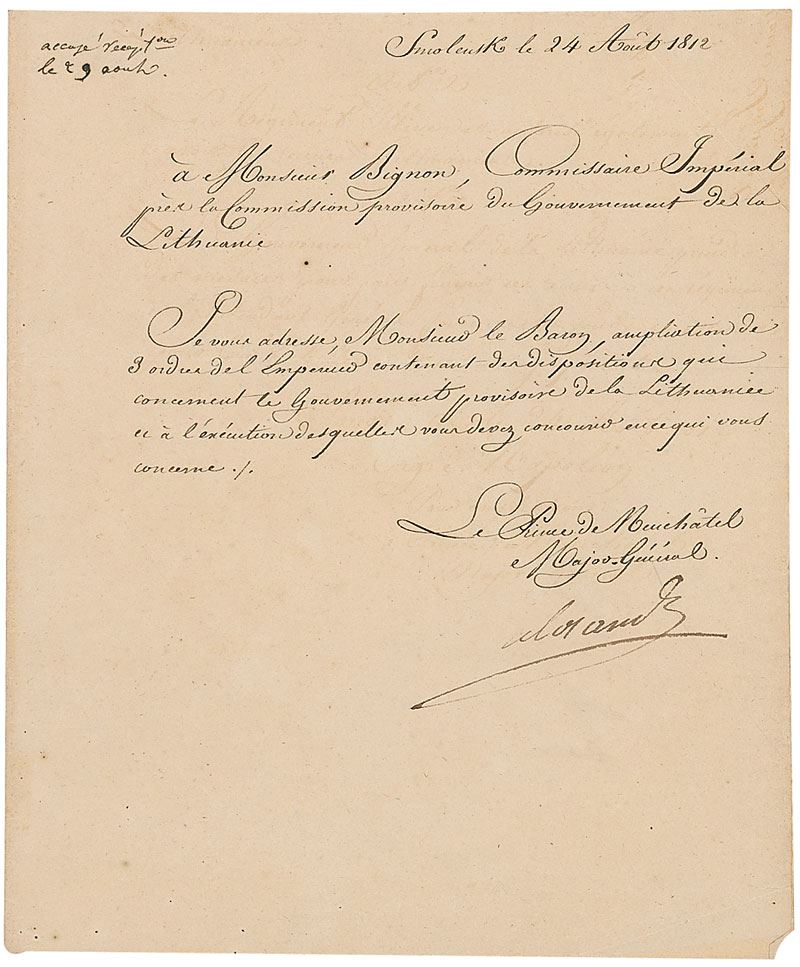 accusé récéption
le 29 aoüt.
Smolensk le 24 Août 1812
à Monsieur Bignon, Commissaire Impérial
près la Commission provisoire du Gouvernement de la
Lithuanie
Je vous adresse, Monsieur le Baron, ampliation de
3 ordres de l'Empereur contenant des dispositions qui
concernent le Gouvernement provisoire de la Lithuaniee
et à l'exécution desquelles vous devez concourir en ce qui vous
concerne ./.
Le Prince de Neuchâtel
Major-Général.
Alexandre